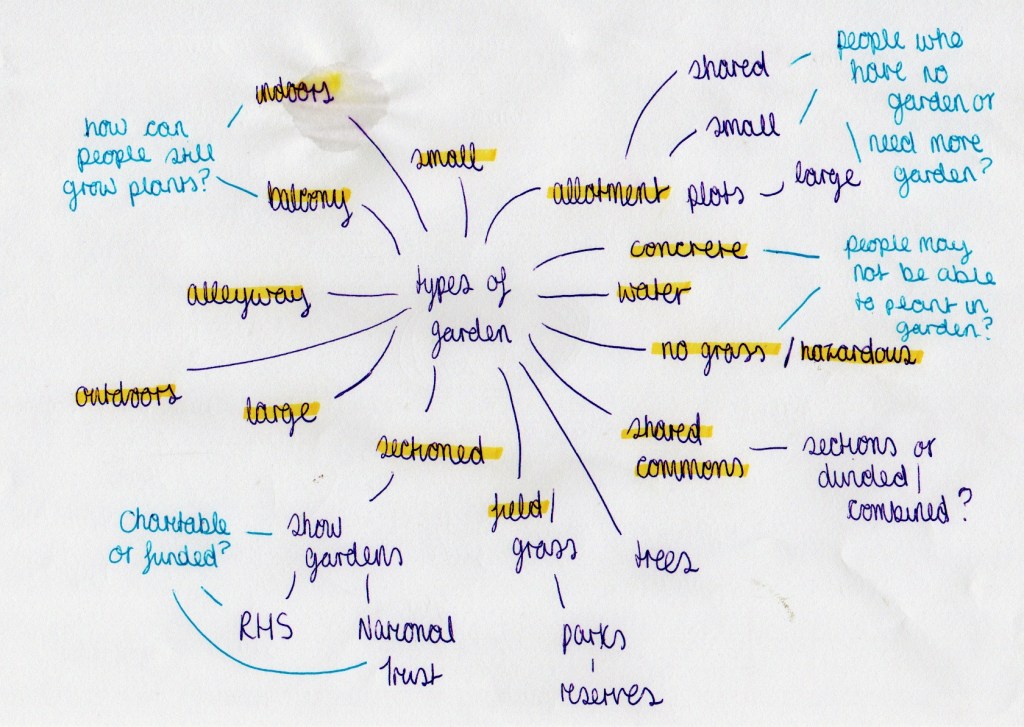 types of
garden
indoors
how can
people still
grow plants?
balcony
small
allotment
shared
small
plots
large
people who
have no
garden or
need more
garden?
concrete
water
no grass / hazardous
people may
not be able
to plant in
garden?
shared
commons
sections or
divided /
combined?
trees
field /
grass
parks
reserves
sectioned
show
gardens
RHS
National
Trust
Charitable
or funded?
large
outdoors
alleyway